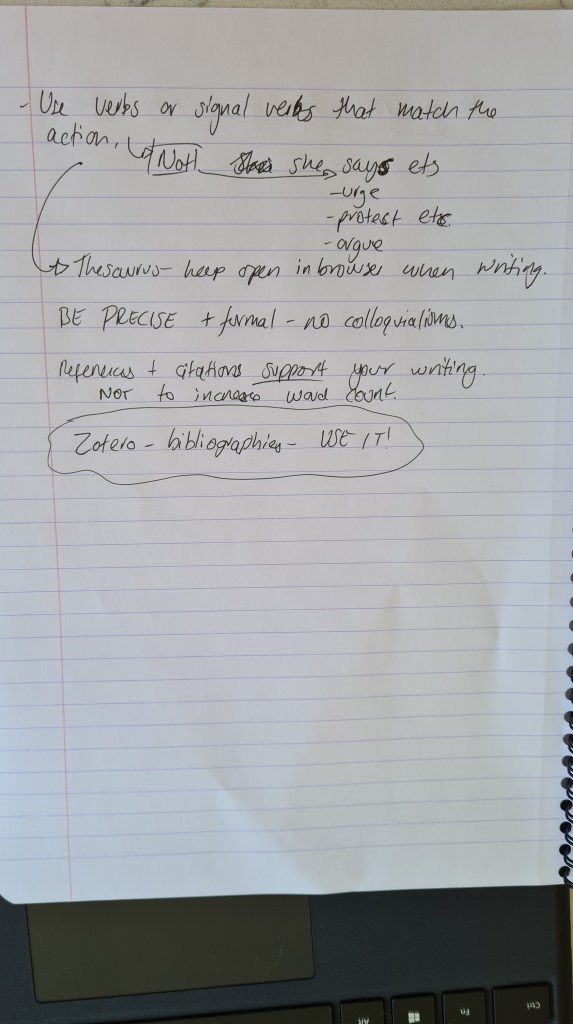 - Use verbs or signal verbs that match the
action.
Not! she says ets
- urge
- protest etc.
- argue
Thesaurus - keep open in browser when writing.
BE PRECISE + formal - no colloquialisms.
References + citations support your writing.
NOT to increase word count.
Zotero - bibliographies - USE IT!
Alt
Fn
Ctrl